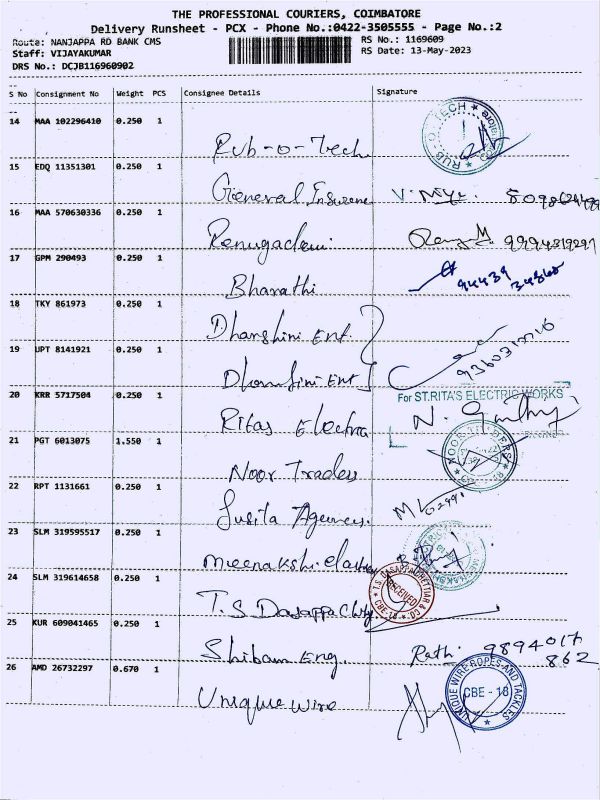 THE PROFESSIONAL COURIERS, COIMBATORE
Delivery Runsheet - PCX - Phone No.:0422-3505555 - Page No.:2
Route: NANJAPPA RD BANK CMS
RS No.: 1169609
Staff: VIJAYAKUMAR
RS Date: 13-May-2023
DRS No.: DCJB116960902
S No Consignment No Weight PCS Consignee Details Signature
14 MAA 102296410 0.250 1
Rub-o-Tech
RUB-O-TECH
15 EDQ 11351301 0.250 1
General Insurance
16 MAA 570630336 0.250 1
Renugadevi
17 GPM 290493 0.250 1
Bharathi
94439 34860
18 TKY 861973 0.250 1
Dharshini Ent.
19 UPT 8141921 0.250 1
Dharshini Ent
20 KRR 5717504 0.250 1
For ST.RITA'S ELECTRIC WORKS
Ritas Electra
21 PGT 6013075 1.550 1
Noor Traders
NOOR TRADERS
22 RPT 1131661 0.250 1
Agencies
23 SLM 319595517 0.250 1
Meenakshi
24 SLM 319614658 0.250 1
T.S Dasappa Chetty
RECEIVED
CBE-18
25 KUR 609041465 0.250 1
Shibam Eng.
9894017
862
26 AMD 26732297 0.670 1
Unique wire
UNIQUE WIRE ROPES AND TACKLES
CBE - 18